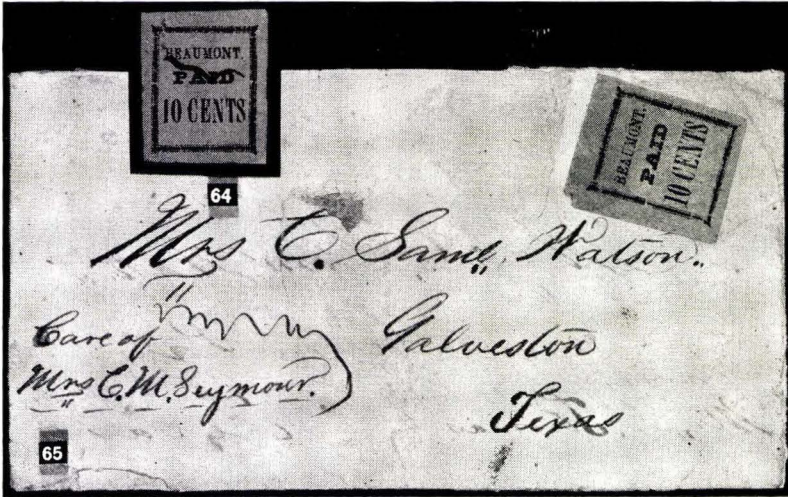 BEAUMONT.
PAID
10 CENTS
64
BEAUMONT.
PAID
10 CENTS
Mrs C. Saml. Watson.
Care of
Mrs C. M. Seymour.
Galveston
Texas
65